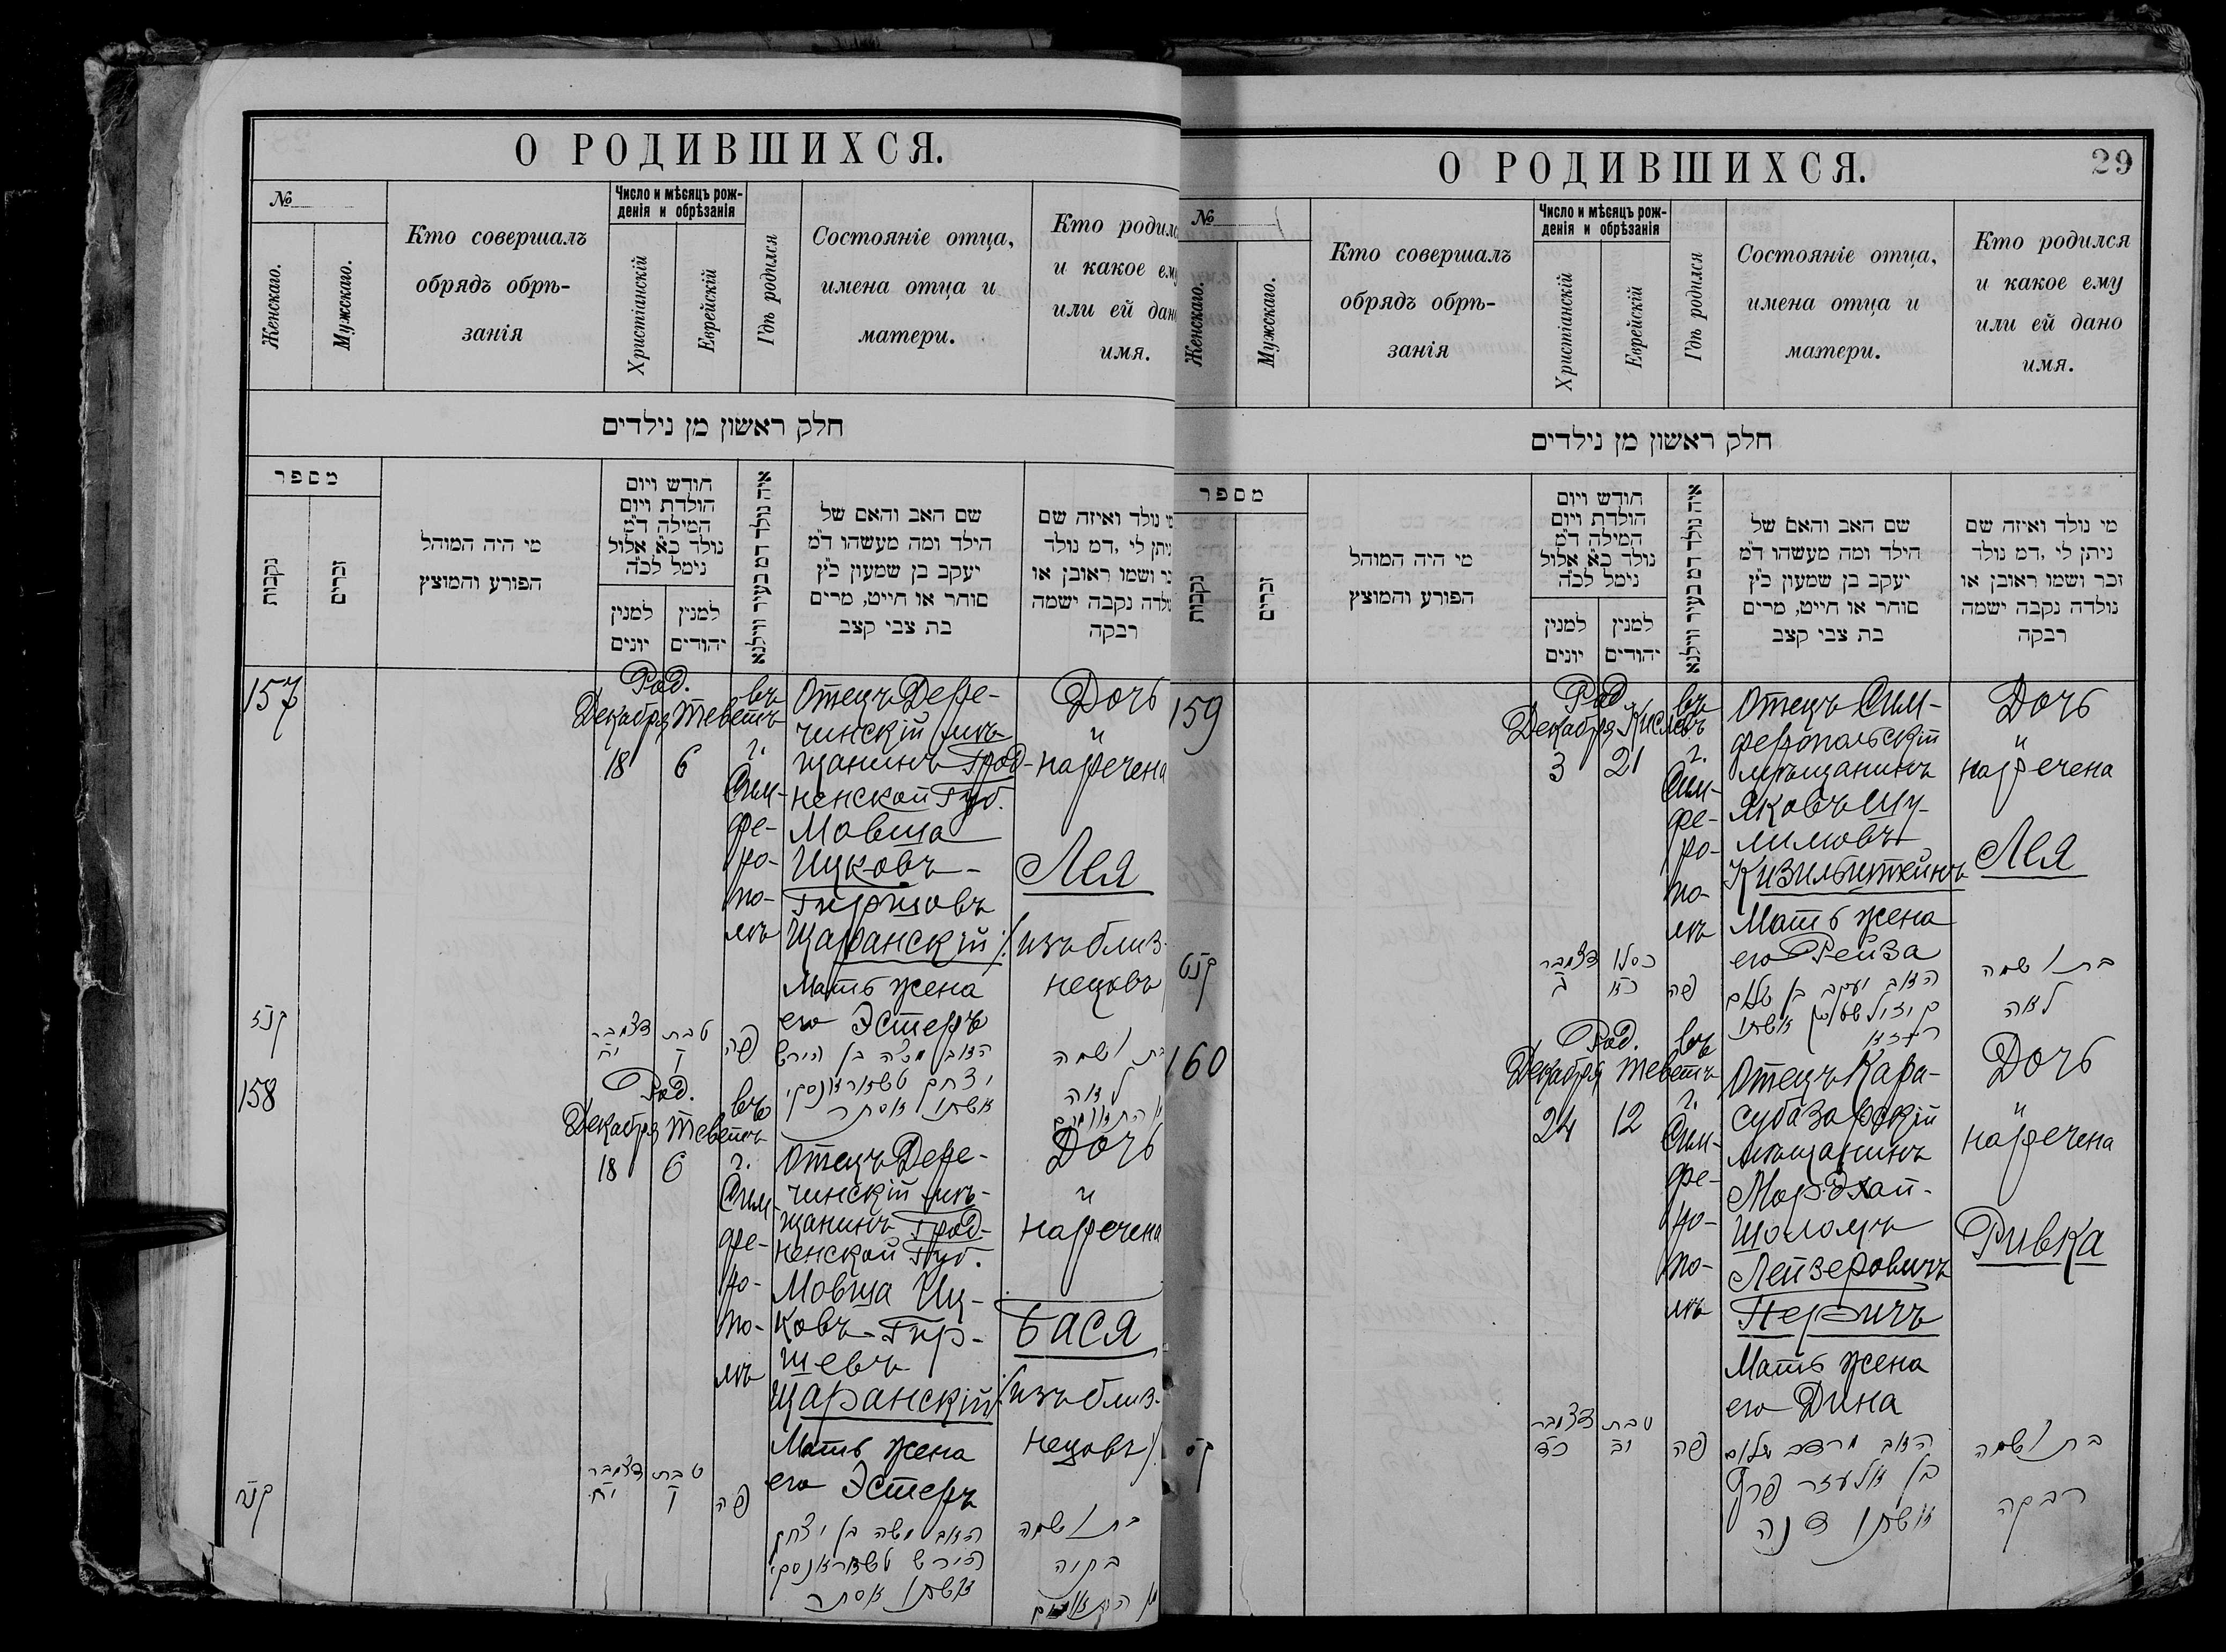 О РОДИВШИХСЯ.
№
Женскаго.
Мужскаго.
Кто совершалъ
обрядъ обрѣ-
занія
Число и мѣсяцъ рож-
денія и обрѣзанія
Христіанскій
Еврейскій
Гдѣ родился
Состояніе отца,
имена отца и
матери.
Кто родилс
и какое ему
или ей дано
имя.
חלק ראשון מן נילדים
מספר
נקבות
זכרים
מי היה המוהל
הפורע והמוצץ
חודש ויום
הולדת ויום
המילה ד״מ
נולד כ״א אלול
נימל לכ״ה
למנין
יונים
למנין
יהודים
איה נולד דמ בעיר ווילנא
שם האב והאם של
הילד ומה מעשהו ד״מ
יעקב בן שמעון כ״ץ
סוחר או חייט, מרים
בת צבי קצב
מי נולד ואיזה שם
ניתן לי ,דמ נולד
זכר ושמו ראובן או
נולדה נקבה ישמה
רבקה
157
Род.
Декабря Теветъ
18 6
въ
г.
Сим-
фе-
ро-
по-
лѣ
Отецъ Дере-
чинскій мѣ-
щанинъ Грод-
ненской Губ.
Мовша
Ицковъ-
Гиршовъ
Щаранскій
Мать жена
его Эстеръ
Дочь
и
наречена
Лея
/:изъ близ-
нецовъ
קנז
דצמבר
יח
טבת
ו
פה
האב משה בן הירש
יצחק טשאראנסקי
אשתו אסתר
בת ושמה
לאה
מן התאומים
158
Род.
Декабря Теветъ
18 6
въ
г.
Сим-
фе-
ро-
по-
лѣ
Отецъ Дере-
чинскій мѣ-
щанинъ Грод-
ненской Губ.
Мовша Иц-
ковъ-Гир-
шевъ
Щаранскій
Мать жена
его Эстеръ
Дочь
и
наречена
Бася
/:изъ близ-
нецовъ/
קנח
דצמבר
יח
טבת
ו
פה
האב משה בן יצחק
הירש טשאראנסקי
אשתו אסתר
בת ושמה
מן התאומים
О РОДИВШИХСЯ.
29
№
Женскаго.
Мужскаго.
Кто совершалъ
обрядъ обрѣ-
занія
Число и мѣсяцъ рож-
денія и обрѣзанія
Христіанскій
Еврейскій
Гдѣ родился
Состояніе отца,
имена отца и
матери.
Кто родился
и какое ему
или ей дано
имя.
חלק ראשון מן נילדים
מספר
נקבות
זכרים
מי היה המוהל
הפורע והמוצץ
חודש ויום
הולדת ויום
המילה ד״מ
נולד כ״א אלול
נימל לכ״ה
למנין
יונים
למנין
יהודים
איה נולד דמ בעיר ווילנא
שם האב והאם של
הילד ומה מעשהו ד״מ
יעקב בן שמעון כ״ץ
סוחר או חייט, מרים
בת צבי קצב
מי נולד ואיזה שם
ניתן לי ,דמ נולד
זכר ושמו ראובן או
נולדה נקבה ישמה
רבקה
159
Род.
Декабря Кислевъ
3 21
въ
г.
Сим-
фе-
ро-
по-
лѣ
Отецъ Сим-
феропольскій
мѣщанинъ
Яковъ Шу-
лимовъ
Кизильштейнъ
Мать жена
его Рейза
Дочь
и
наречена
Лея
קנט
דצמבר
ג
כסלו
כא
פה
האב יעקב בן שלום
קיזילשטיין אשתו
רייזא
בת ושמה
לאה
160
Род.
Декабря Теветъ
24 12
въ
г.
Сим-
фе-
ро-
по-
лѣ
Отецъ Кара-
субазарскій
мѣщанинъ
Мордхай-
Шоломъ
Лейзеровичъ
Перичъ
Мать жена
его Дина
Дочь
и
наречена
Ривка
קס
דצמבר
כד
טבת
יב
פה
האב מרדכי שלום
בן אלעזר פריץ
אשתו דינה
בת ושמה
רבקה